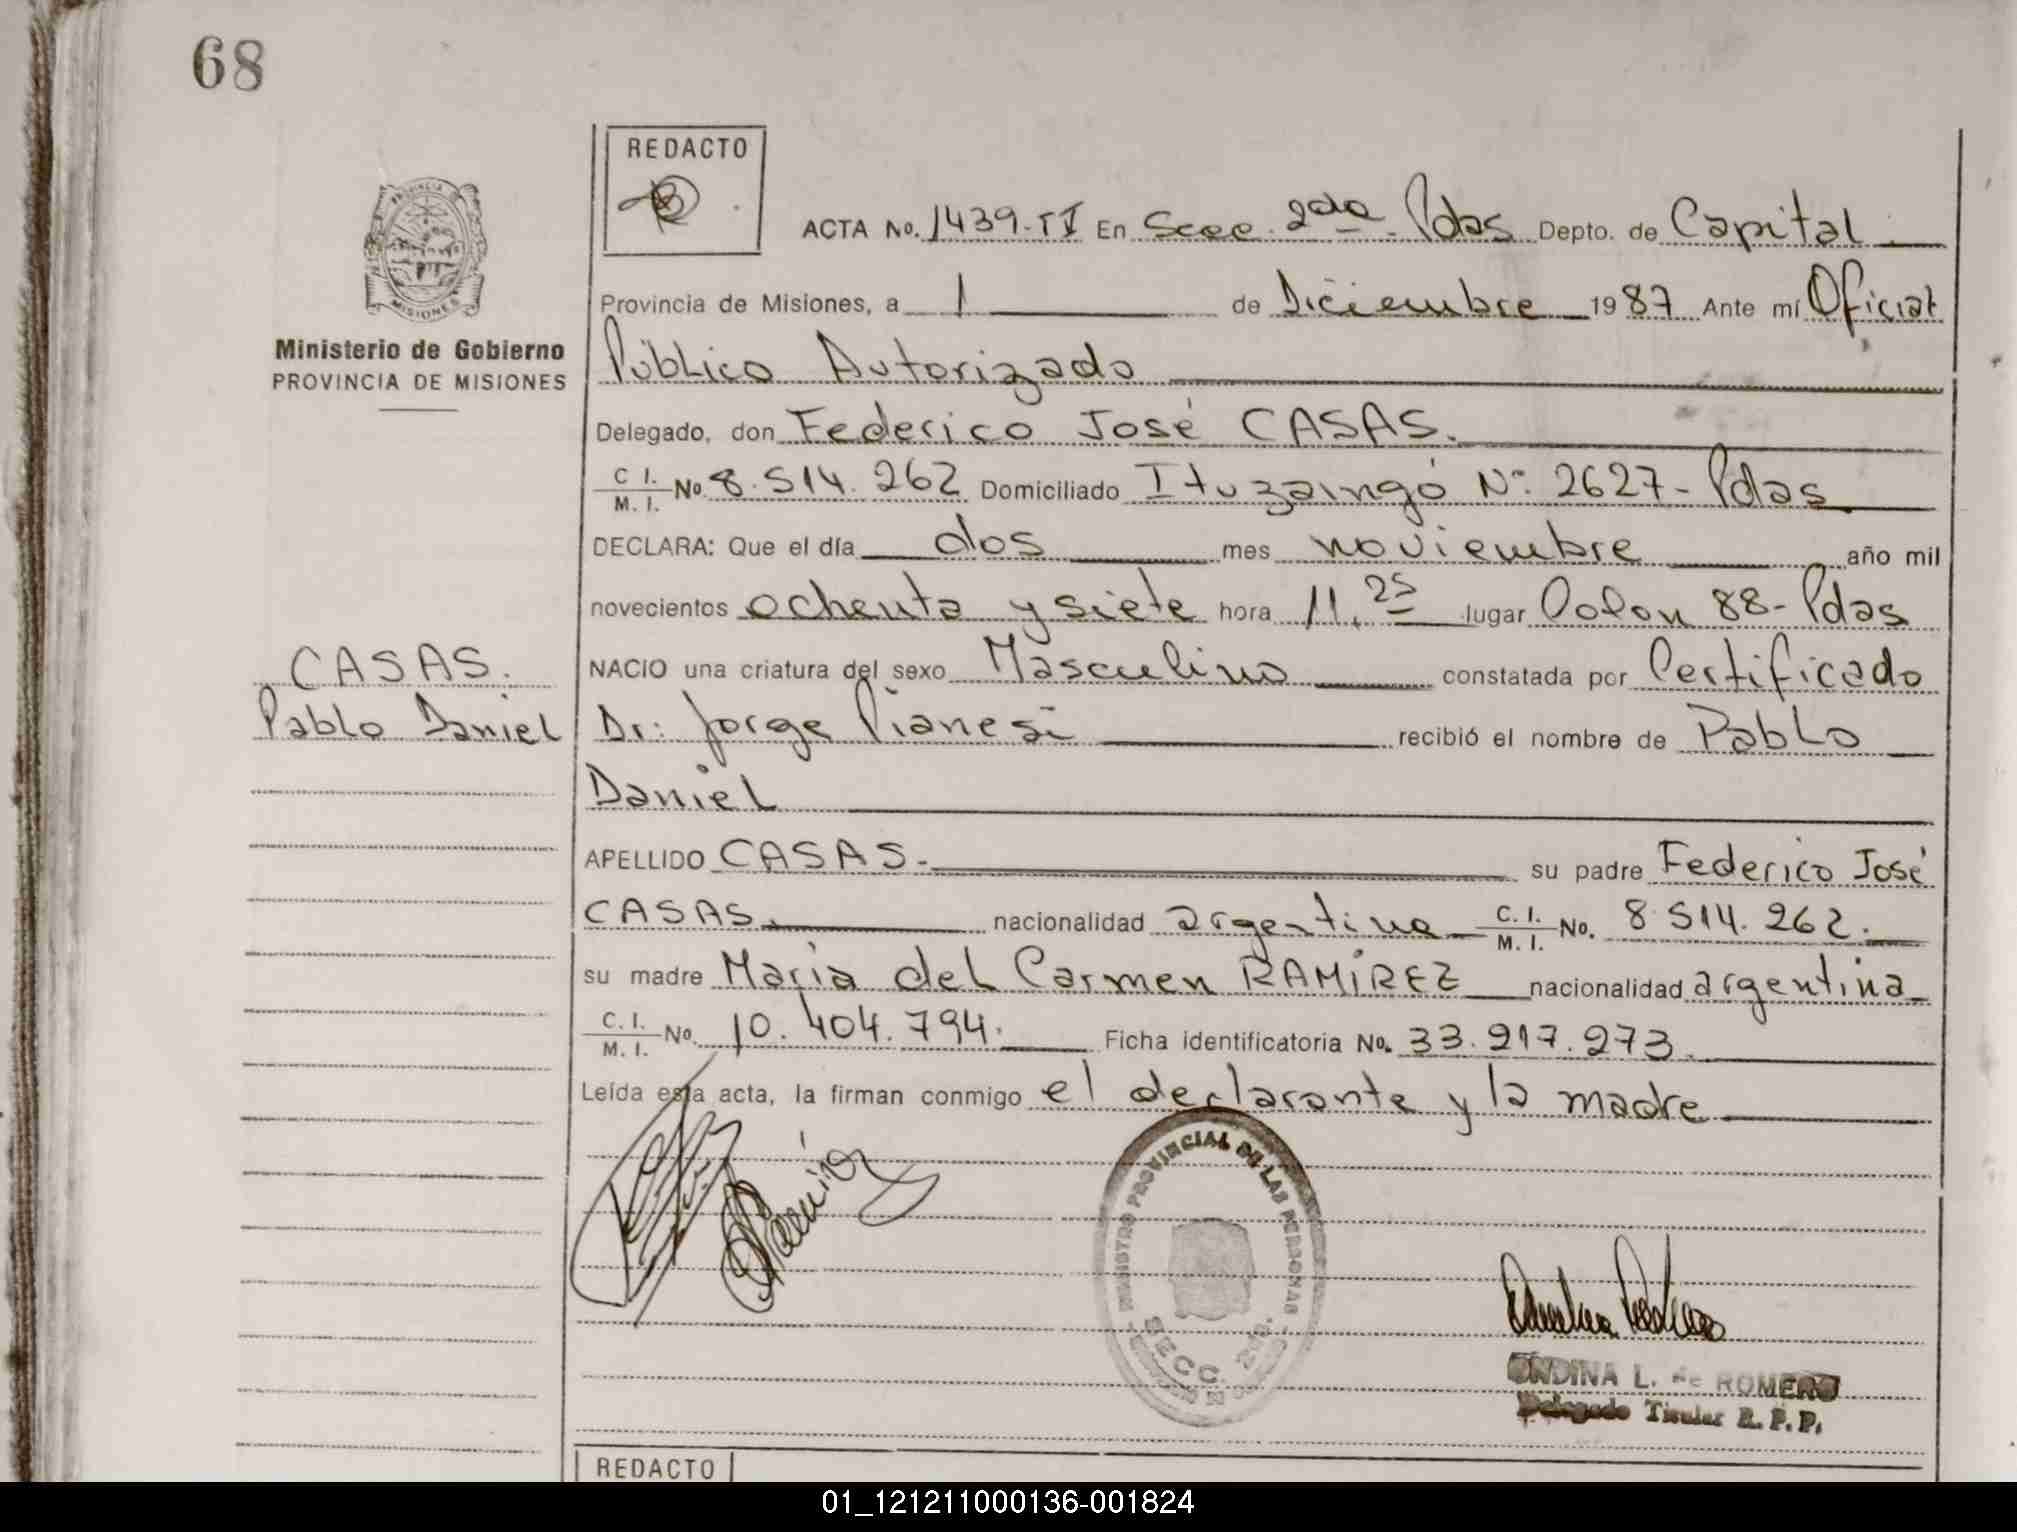 68
REDACTO
ACTA No. 1439-II En Secc. 2da Pdas Depto. de Capital
Provincia de Misiones, a 1 de Diciembre 1987 Ante mí Oficial
Público Autorizado
Delegado, don Federico José CASAS.
C I. / M. I. No. 8.514.262 Domiciliado Ituzaingó Nº 2627- Pdas
DECLARA: Que el día dos mes noviembre año mil
novecientos ochenta y siete hora 11,25 lugar Colon 88- Pdas
NACIO una criatura del sexo Masculino constatada por Certificado
Dr: Jorge Pianesi recibió el nombre de Pablo
Daniel
APELLIDO CASAS.- su padre Federico José
CASAS. nacionalidad argentina C. I. / M. I. No. 8.514.262.
su madre María del Carmen RAMÍREZ nacionalidad argentina
C. I. / M. I. No. 10.404.794. Ficha identificatoria No. 33.217.273.
Leída esta acta, la firman conmigo el declarante y la madre
PROVINCIA DE
MISIONES
Ministerio de Gobierno
PROVINCIA DE MISIONES
CASAS.
Pablo Daniel
REGISTRO PROVINCIAL DE LAS PERSONAS
SECC. 2da.
ONDINA L. de ROMERO
Delegado Titular R. P. P.
REDACTO
01_121211000136-001824